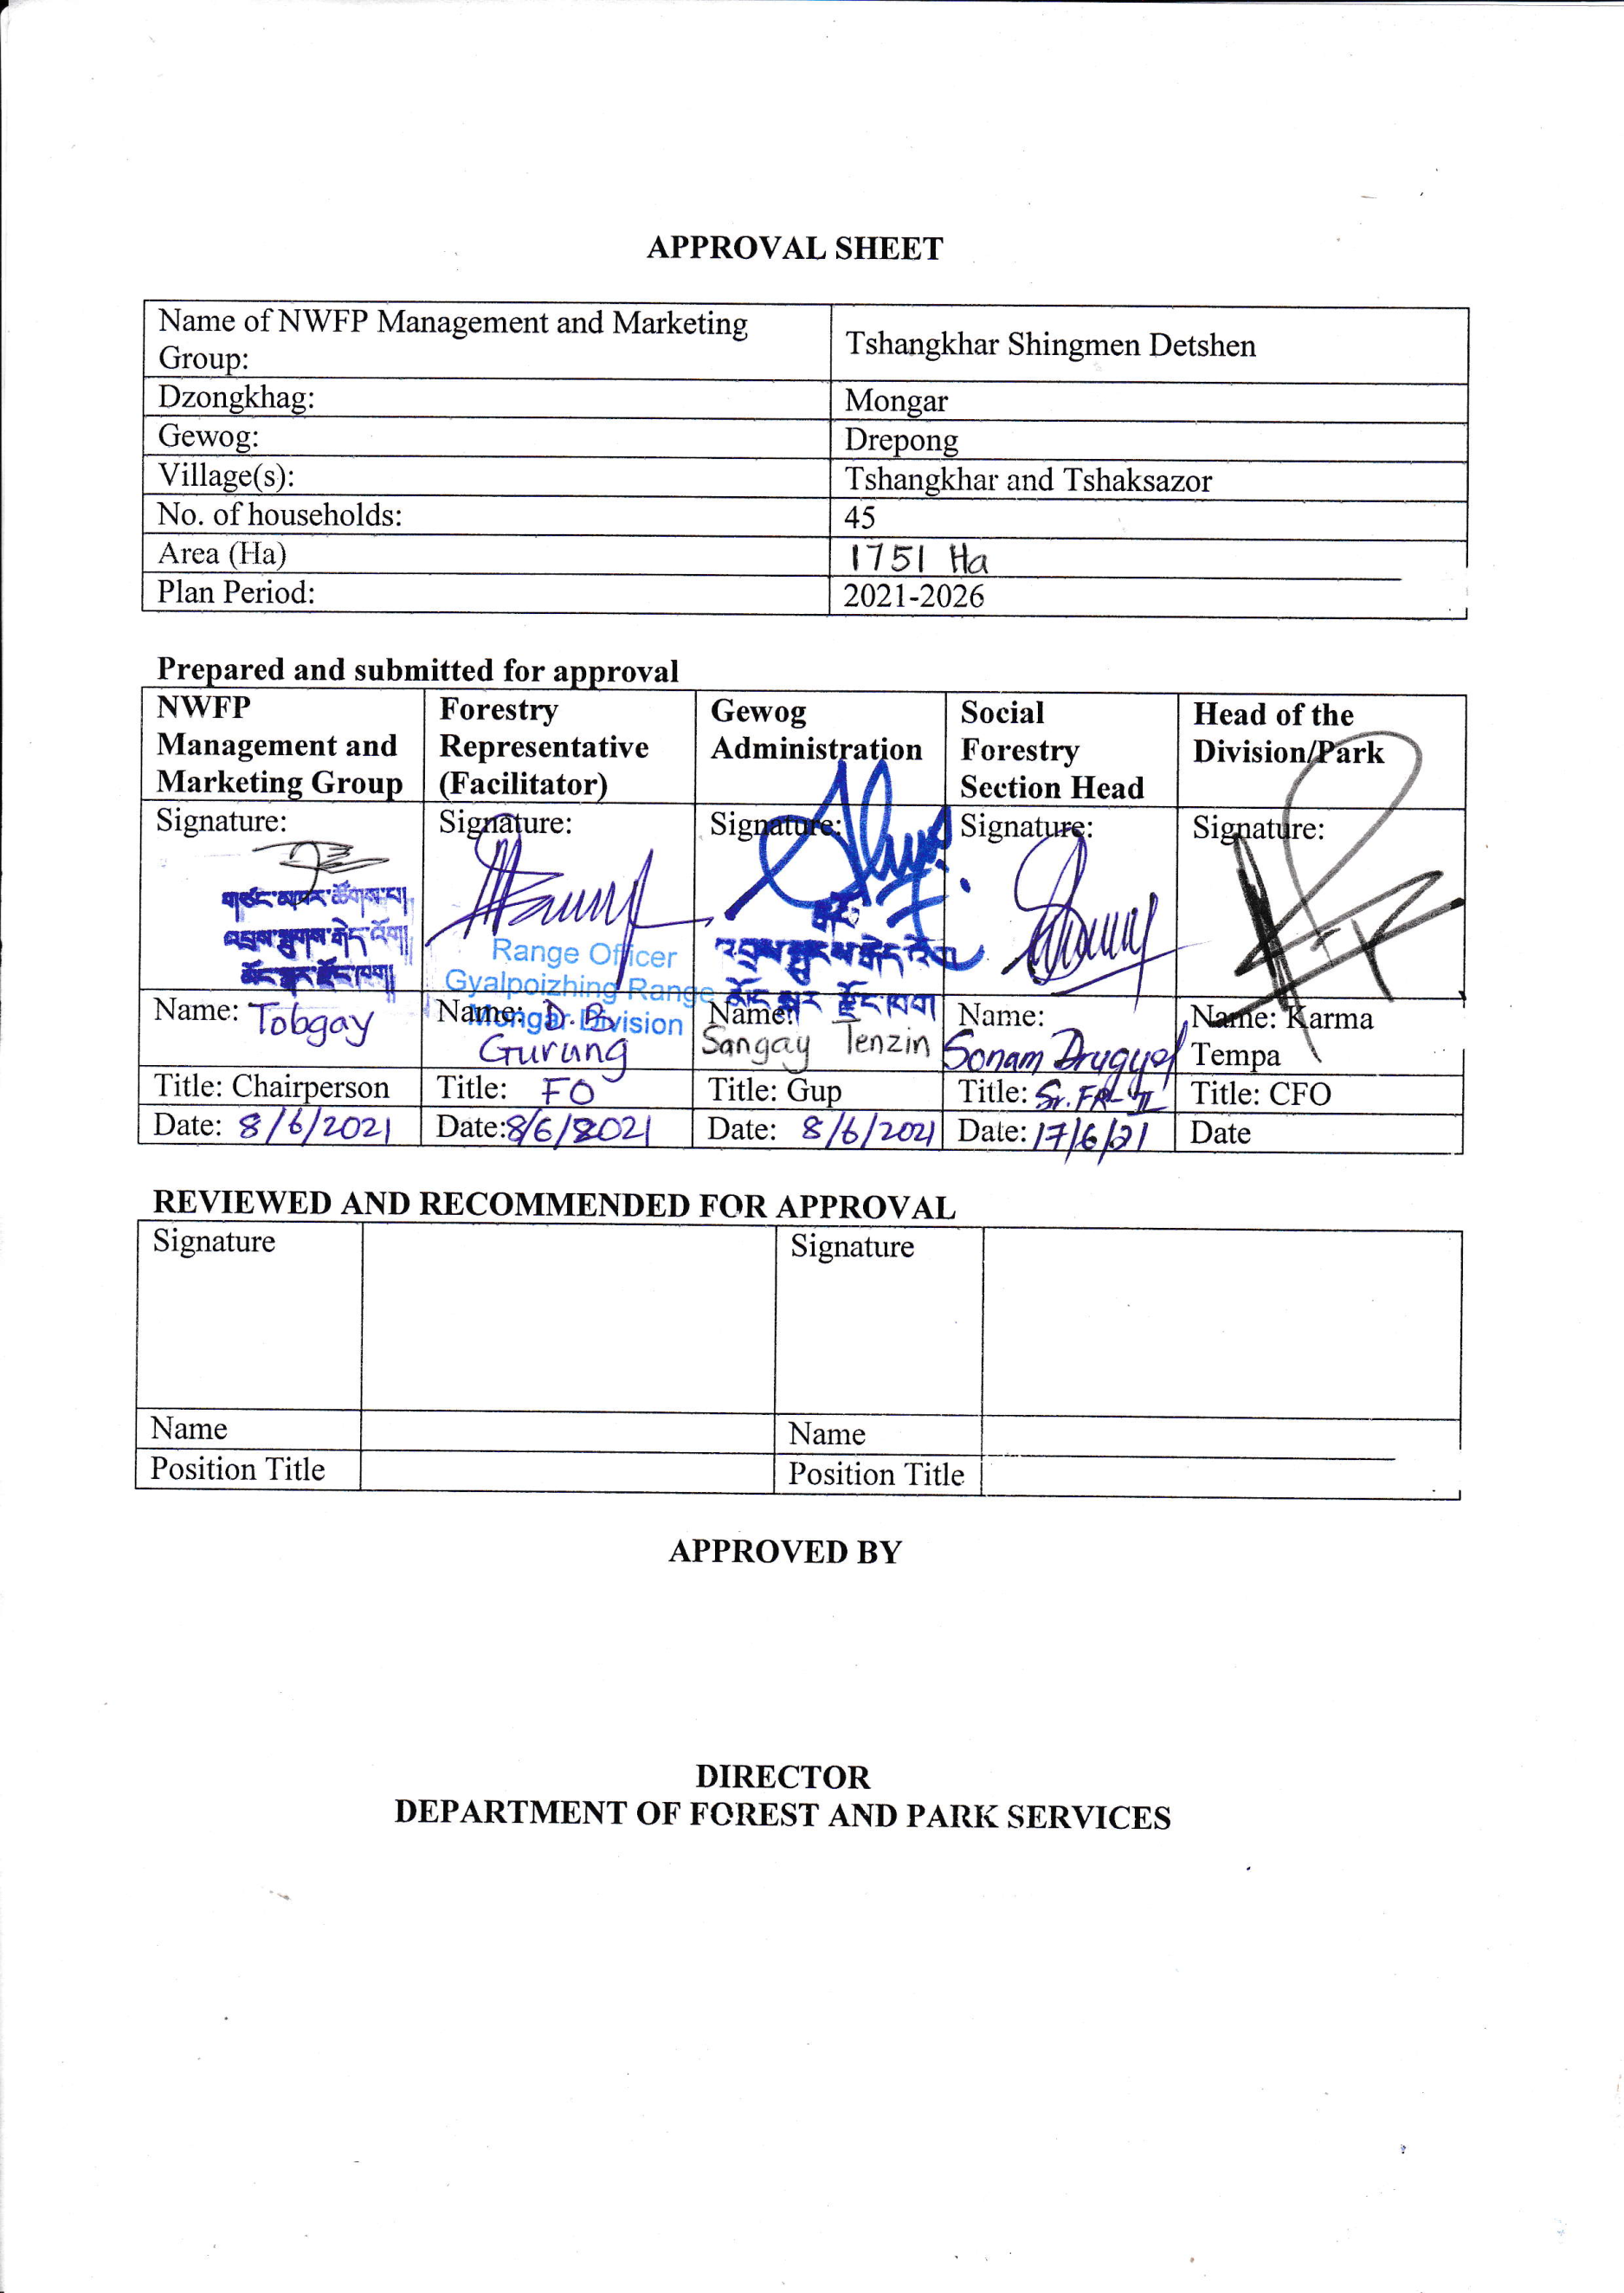 APPROVAL SHEET
Name of NWFP Management and Marketing
Group:
Tshangkhar Shingmen Detshen
Dzongkhag:
Mongar
Gewog:
Drepong
Village(s):
Tshangkhar and Tshaksazor
No. of households:
45
Area (Ha)
1751 Ha
Plan Period:
2021-2026
Prepared and submitted for approval
NWFP
Management and
Marketing Group
Forestry
Representative
(Facilitator)
Gewog
Administration
Social
Forestry
Section Head
Head of the
Division/Park
Signature:
Signature:
Range Officer
Gyalpoizhing Range
Mongar Division
Signature:
Signature:
Signature:
Name: Tobgay
Name: D.B
Gurung
Name:
Sangay Tenzin
Name:
Sonam Drugyel
Name: Karma
Tempa
Title: Chairperson
Title: FO
Title: Gup
Title: Sr. FR II
Title: CFO
Date: 8/6/2021
Date: 8/6/2021
Date: 8/6/2021
Date: 17/6/21
Date
REVIEWED AND RECOMMENDED FOR APPROVAL
Signature
Signature
Name
Name
Position Title
Position Title
APPROVED BY
DIRECTOR
DEPARTMENT OF FOREST AND PARK SERVICES